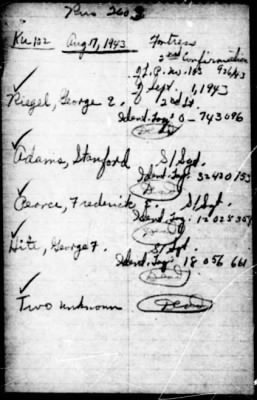 Ku 122 Aug 17, 1943 Fortress
2nd Confirmation
Sept. 1, 1943
Riegel, George E. 2nd Lt.
Ident. Tag: O-743096
Dead
Adams, Stanford S/Sgt.
Ident. Tag: 32430153
Dead
Pearce, Frederick E. S/Sgt.
Ident. Tag: 12028307
Dead
Hite, George F. S/Sgt.
Ident. Tag: 18 056 661
Dead
Two unknown Dead